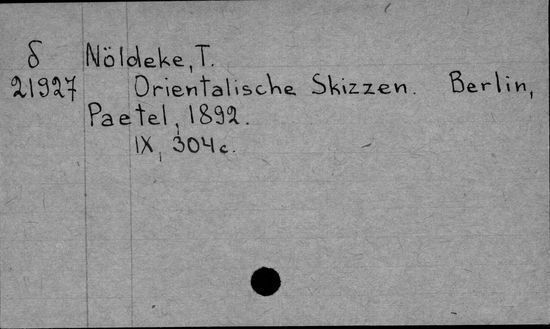 δ Nöldeke, T.
21927 Orientalische Skizzen. Berlin,
Paetel, 1892.
IX, 304 c.